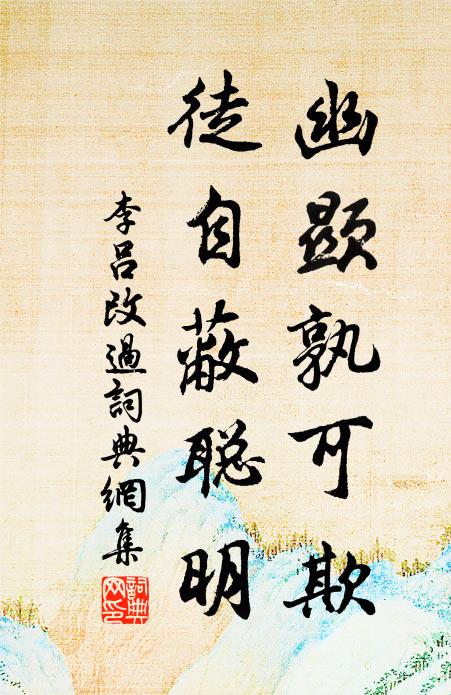 幽顯孰可欺
徒自蔽聪明
李吕改過詞典網集
詞典网印